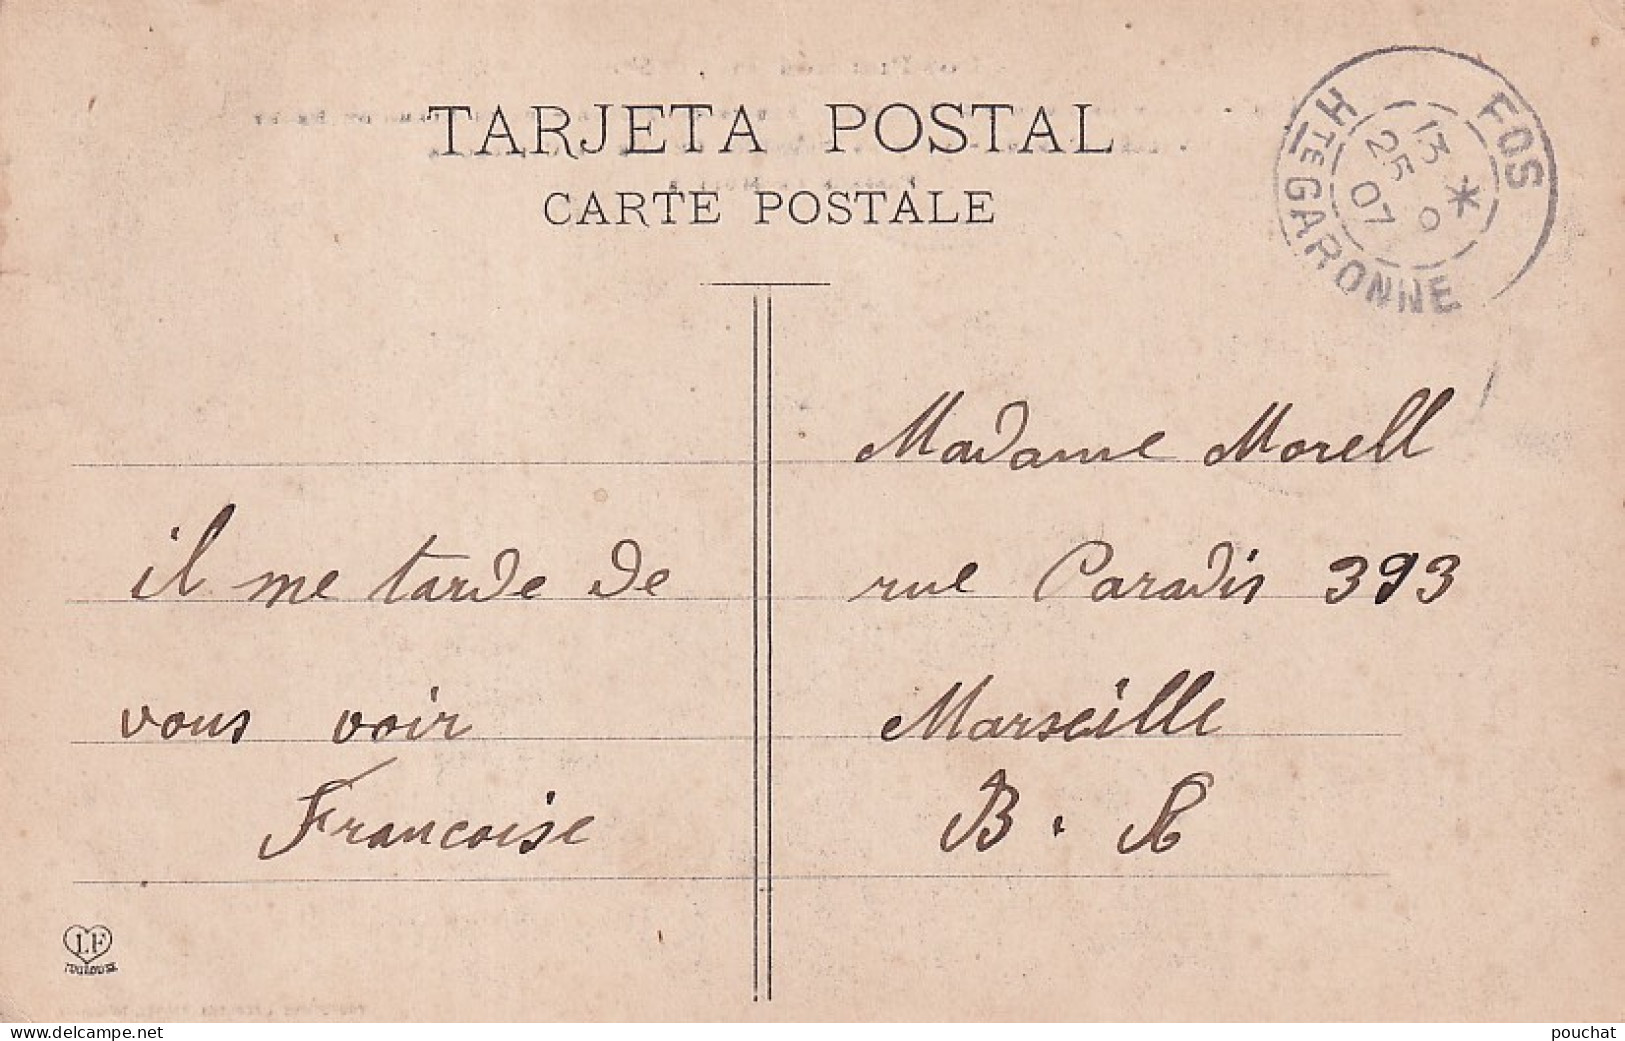 TARJETA POSTAL
CARTE POSTALE
FOS
HTE GARONNE
13
25
07
Madame Morell
il me tarde de
rue Paradis 393
vous voir
Marseille
Francoise
B. R
LF
TOULOUSE
www.delcampe.net
pouchat